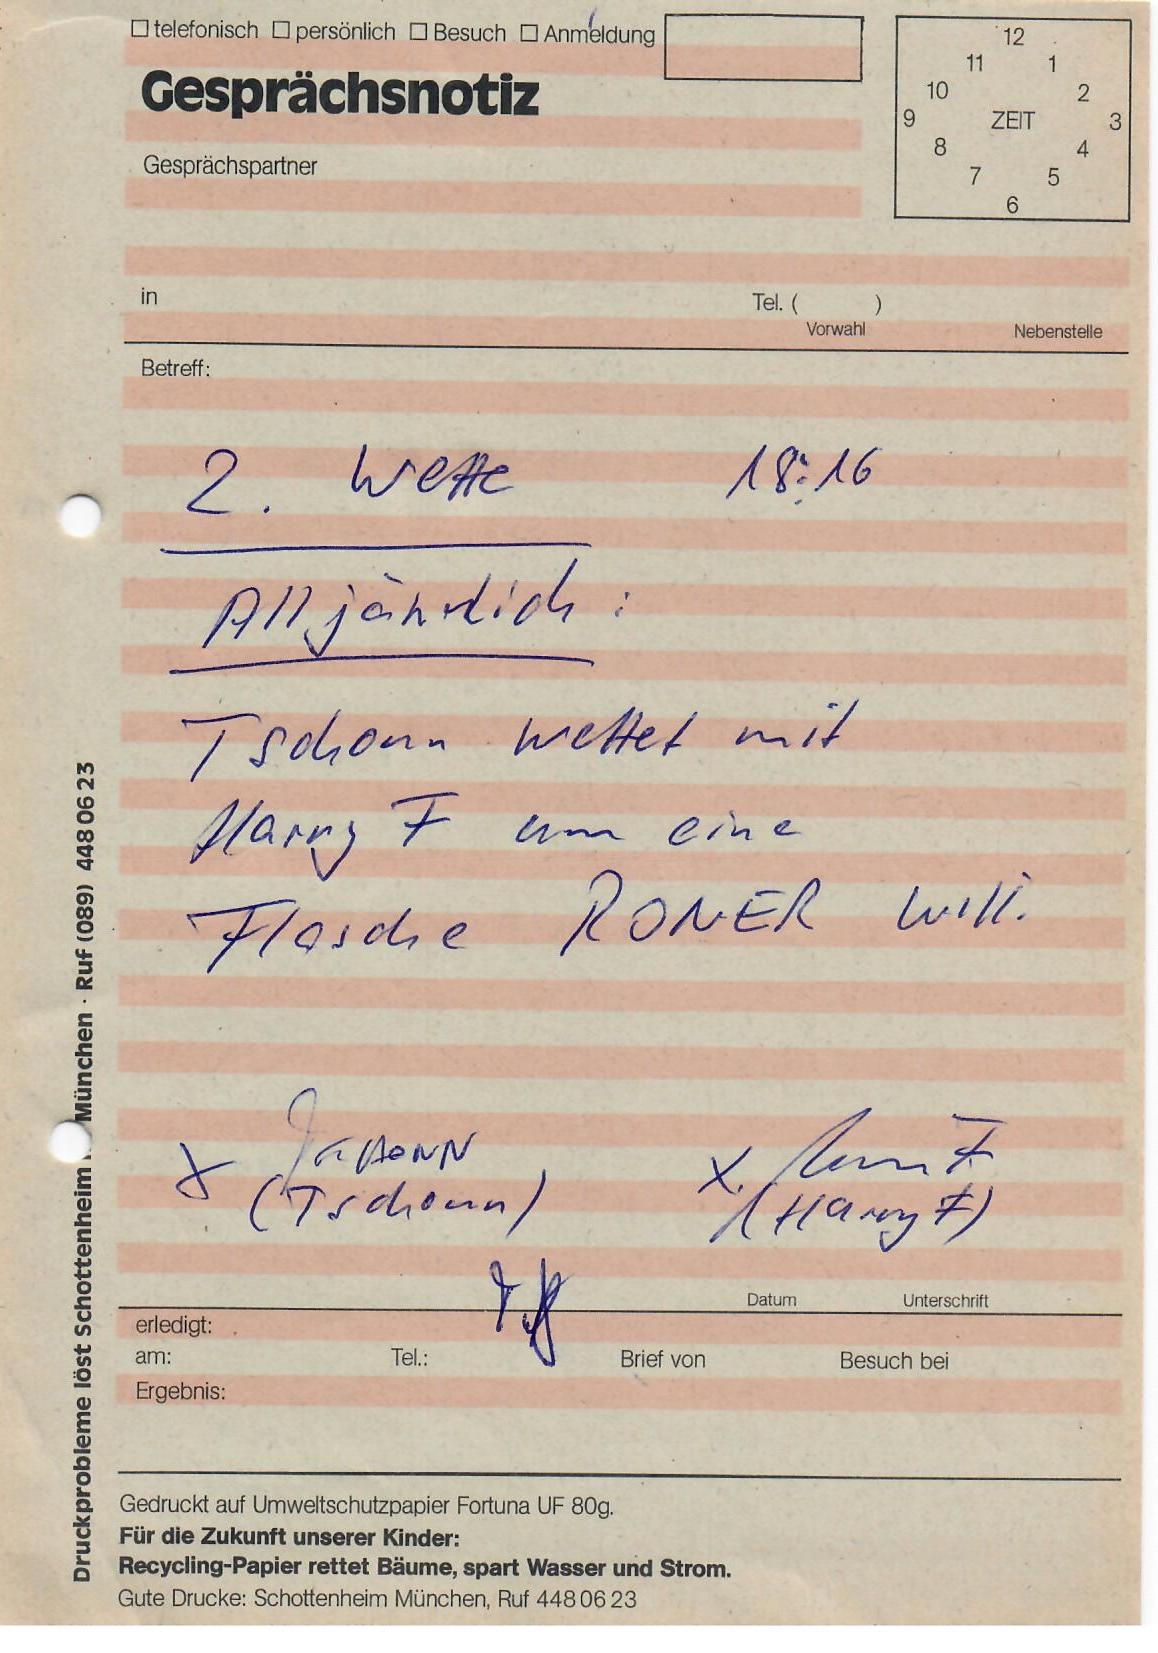 ☐ telefonisch ☐ persönlich ☐ Besuch ☐ Anmeldung
Gesprächsnotiz
Gesprächspartner
12
11 1
10 2
9 ZEIT 3
8 4
7 5
6
in Tel. ( )
Vorwahl Nebenstelle
Betreff:
2. Wette 18:16
Alljährlich:
Tschonn wettet mit
Harry F um eine
Flasche RONER Will.
x
(Tschonn)
x.
(Harry F)
Datum Unterschrift
erledigt:
am: Tel.: Brief von Besuch bei
Ergebnis:
Gedruckt auf Umweltschutzpapier Fortuna UF 80g.
Für die Zukunft unserer Kinder:
Recycling-Papier rettet Bäume, spart Wasser und Strom.
Gute Drucke: Schottenheim München, Ruf 448 06 23
Druckprobleme löst Schottenheim München · Ruf (089) 448 06 23